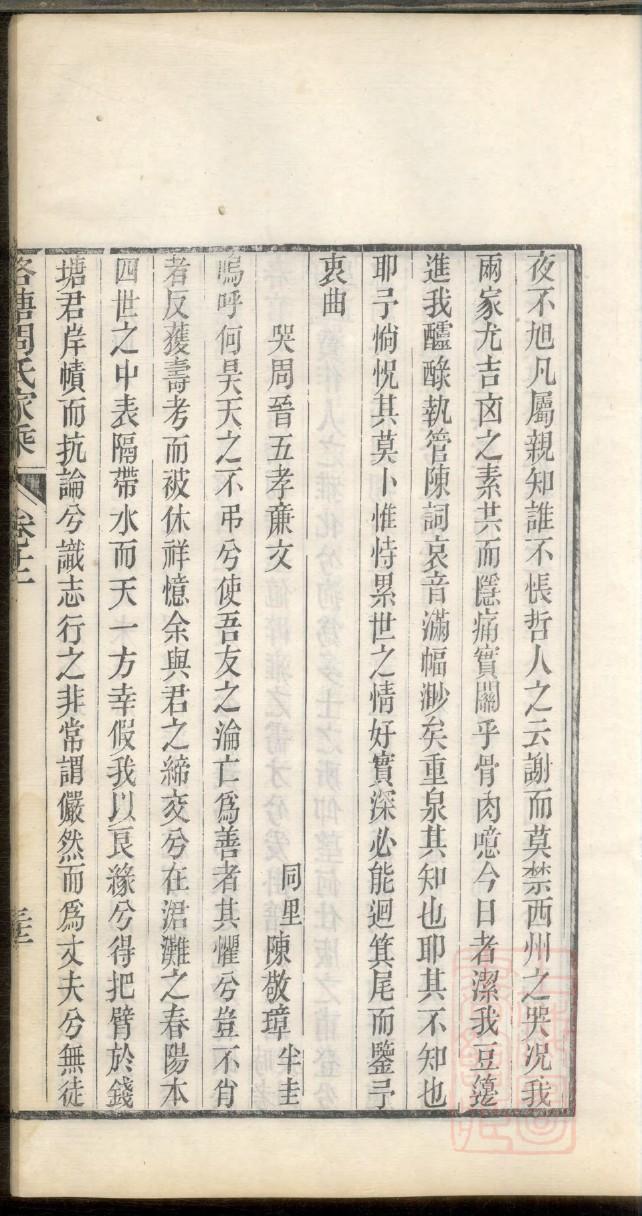 夜不旭凡屬親知誰不悵哲人之云謝而莫禁西州之哭况我
兩家尤吉凶之素共而隱痛實關乎骨肉噫今日者潔我豆籩
進我醽醁執管陳詞哀音滿幅渺矣重泉其知也耶其不知也
耶予惝怳其莫卜惟恃累世之情好實深必能迴箕尾而鑒予
衷曲
哭周晉五孝廉文
同里陳敬璋半圭
嗚呼何昊天之不弔兮使吾友之淪亡爲善者其懼兮豈不肖
者反獲壽考而被休祥憶余與君之締交兮在涒灘之春陽本
四世之中表隔帶水而天一方幸假我以良緣兮得把臂於錢
塘君岸幘而抗論兮識志行之非常謂儼然而爲丈夫兮無徒
洛塘周氏家乘